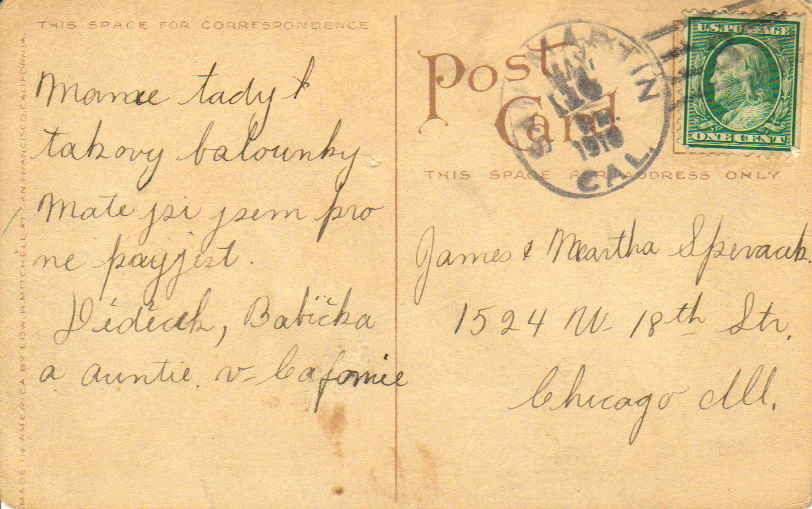 THIS SPACE FOR CORRESPONDENCE
Mamme tady
takovy balounky
Mate jsi jsem pro
ne payjest.
Dědeček, Babička
a auntie v Cafornie
MADE IN AMERICA BY EDW. H. MITCHELL AT SAN FRANCISCO, CALIFORNIA.
Post
Card
THIS SPACE FOR ADDRESS ONLY
SAN MARTIN
MAY
16
1910
CAL.
U.S. POSTAGE
ONE CENT
James & Martha Spevacek.
1524 W. 18th Str.
Chicago Ill.